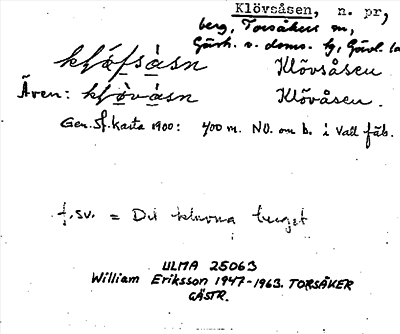 Klövsåsen, n. pr,
berg, Torsåkers sn,
Gästr. v. doms. lg, Gävl. lä
kljáfsàsn Klövsåsen
Även: kljòvàsn Klövåsen.
Gen. Sf. Karta 1900: 400 m. NO. om b. i Vall fäb.
f. sv. = Det kluvna berget
ULMA 25063
William Eriksson 1947-1963. TORSÅKER
GÄSTR.